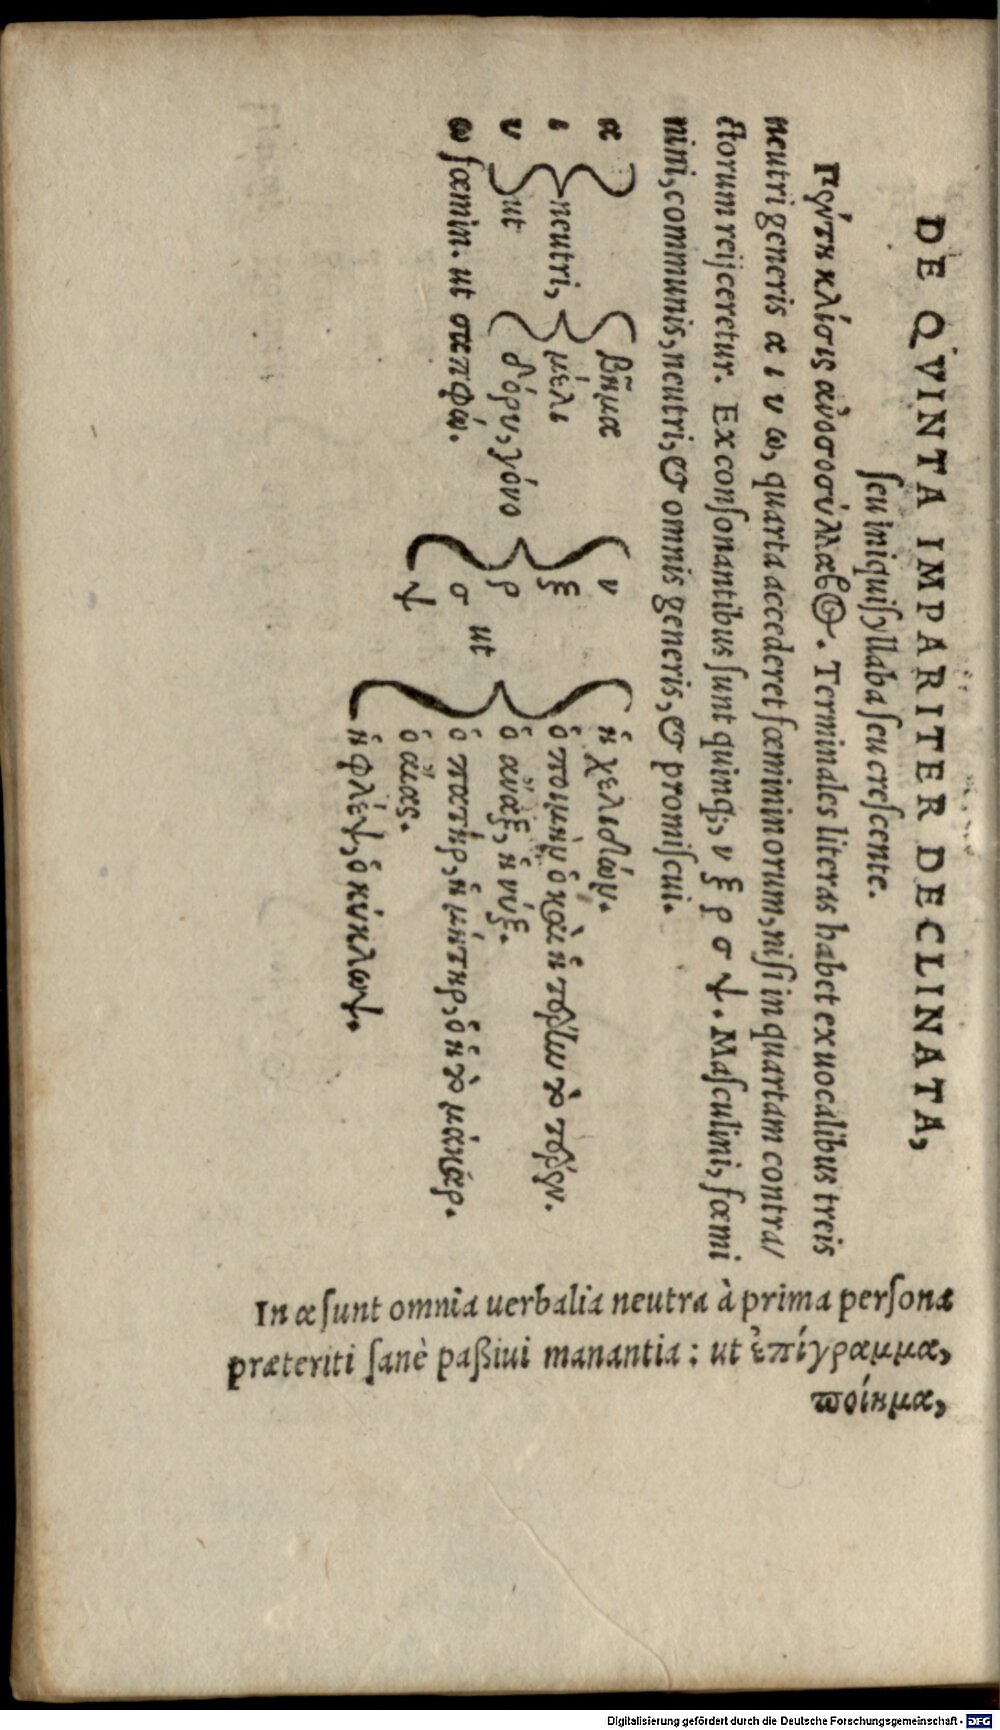 DE QVINTA IMPARITER DECLINATA,
ſeu iniquiſyllaba ſeu creſcente.
κλίσις Terminales literas habet ex uocalibus treis
neutri generis α ι υ ω, quarta accederet fœmininorum, niſi in quartam contra/
ctorum reijceretur. Ex conſonantibus ſunt quinq;, ν ξ ρ σ ψ. Maſculini, fœmi
nini, communis, neutri, & omnis generis, & promiſcui.
α βῆμα
ι neutri, μέλι
υ ut δόρυ, γόνυ
ω fœmin. ut σαπφώ.
ν ἡ χελιδών.
ξ ὁ ποιμὴν ὁ καὶ ἡ τὸ
ρ ut ὁ ἄναξ, ἡ νύξ.
σ ὁ πατήρ, ἡ μήτηρ, ὁ ἡ τὸ μάκαρ.
ψ ὁ αἴας.
ἡ φλέψ, ὁ κύκλωψ.
In α ſunt omnia uerbalia neutra à prima perſona
præteriti ſanè paßiui manantia: ut ἐπίγραμμα,
ποίημα,
Digitalisierung gefördert durch die Deutsche Forschungsgemeinschaft - DFG